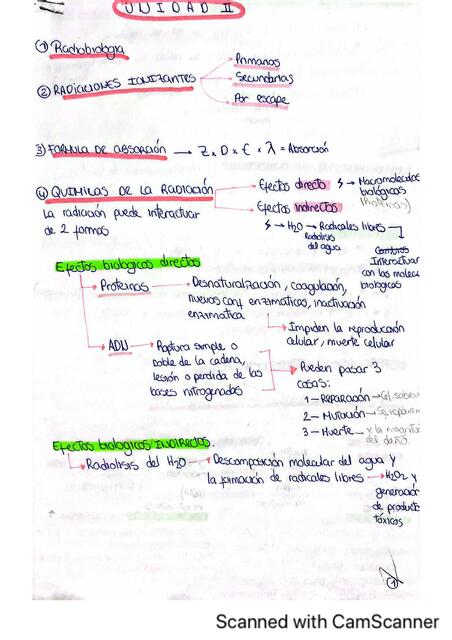 UNIDAD II
① Radiobiología
Primarias
② RADIACIONES IONIZANTES
Secundarias
Por escape
3) FORMULA DE ABSORCIÓN → Z x D x E x λ = Absorción
④ QUIMICAS DE LA RADIACIÓN
Efectos directo ϟ → Macromoleculas biológicas (Proteinas)
Efectos Indirectos
La radiación puede interactuar
de 2 formas
ϟ → H2O → Radicales libres
Radiolisis
del agua
Interactuar
con las molec
biologicas
Efectos biologicos directos
Proteinas → Desnaturalización, coagulación,
nuevas conf enzimaticas, inactivación
enzimatica
Impiden la reproducción
celular, muerte celular
ADN → Ruptura simple o
doble de la cadena,
lesión o perdida de las
bases nitrogenadas
Pueden pasar 3
cosas:
1 - REPARACIÓN →
2 - Mutación →
3 - Muerte → x la
del daño.
Efectos biologicos INDIRECTOS.
Radiolisis del H2O → Descomposición molecular del agua y
la formación de radicales libres → H2O2 y
generación
de product
tóxicos
①
Scanned with CamScanner